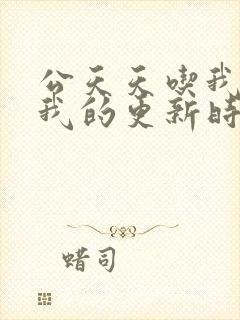 公天天喫我
我的更新時
蜡司